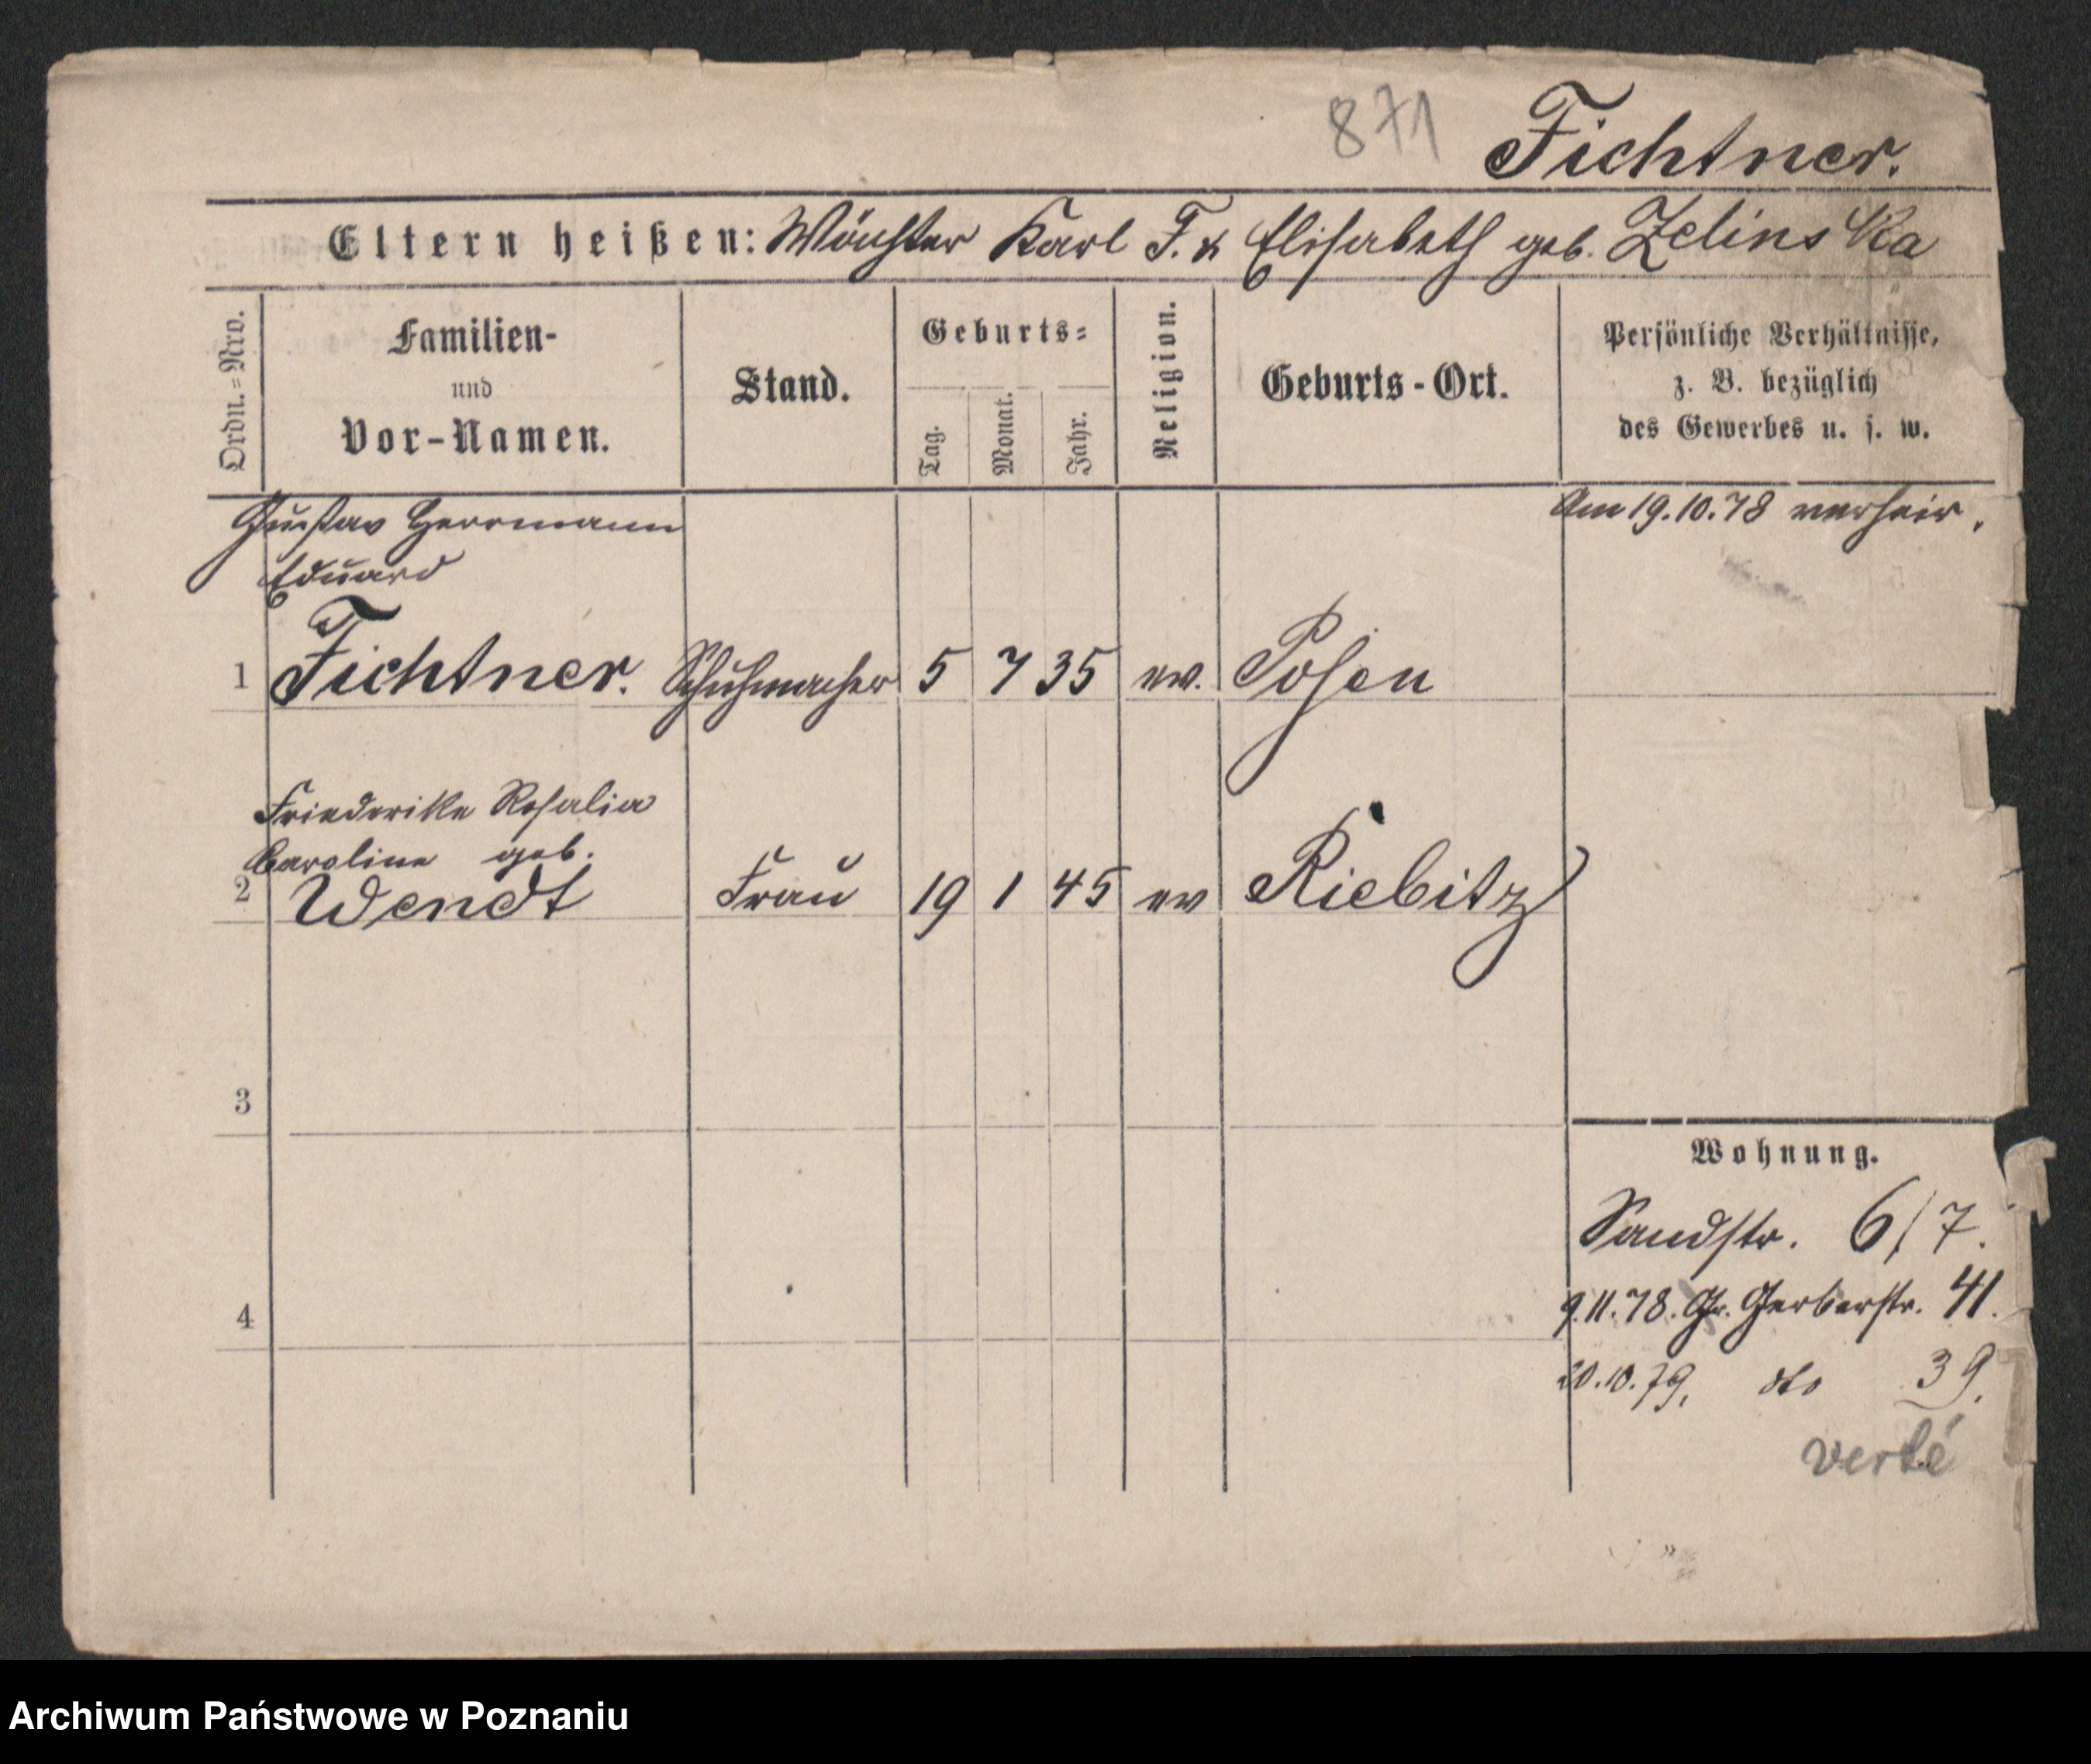 871
Fichtner.
Eltern heißen: Wächter Karl F. & Elisabeth geb. Zelinska
Ordn.=Nro.
Familien-
und
Vor-Namen.
Stand.
Geburts=
Tag.
Monat.
Jahr.
Religion.
Geburts-Ort.
Persönliche Verhältnisse,
z. B. bezüglich
des Gewerbes u. s. w.
Gustav Herrmann
Eduard
Am 19.10.78 verheir.
1 Fichtner. Schuhmacher 5 7 35 ev. Posen
Friederike Rosalia
Caroline geb.
2 Wendt Frau 19 1 45 ev Kiebitz
3
Wohnung.
Sandstr. 6/7.
4
9.11.78. Gr. Gerberstr. 41.
20.10.79. dto 39.
verté
Archiwum Państwowe w Poznaniu